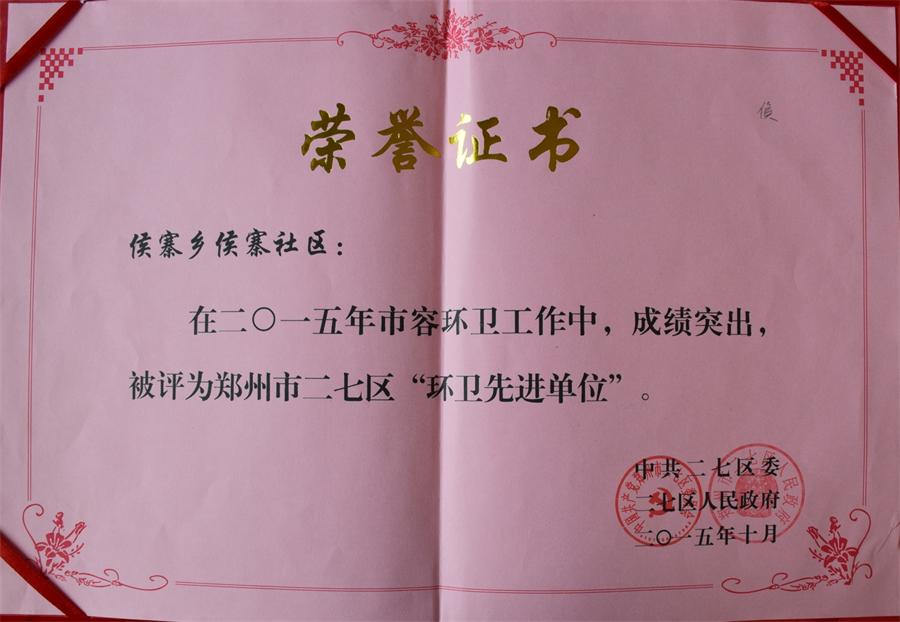 荣誉证书
侯寨乡侯寨社区：
在二〇一五年市容环卫工作中，成绩突出，
被评为郑州市二七区“环卫先进单位”。
中共二七区委
二七区人民政府
二〇一五年十月